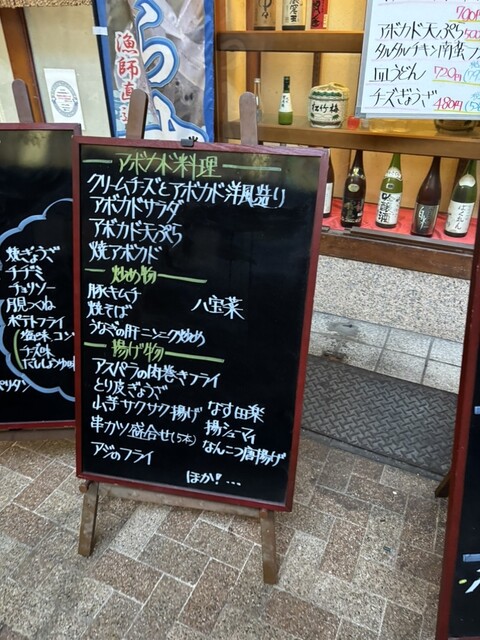 漁師直
松竹梅
吟醸酒
700円
アボカド天ぷら500
タルタルチキン南蛮
皿うどん 720円
チーズぎょうざ 480円
アボカド料理
クリームチーズとアボカド洋風造り
アボカドサラダ
アボカド天ぷら
焼アボカド
炒め物
豚キムチ
焼そば
八宝菜
うなぎの肝ニンニク炒め
揚げ物
アスパラの肉巻きフライ
とり皮ぎょうざ
山芋サクサク揚げ なす田楽
串カツ盛合せ(5本) 揚シューマイ
アジのフライ なんこつ唐揚げ
ほか!…
焼ぎょうざ
チヂミ
チョリソー
月見つくね
ポテトフライ
塩味 コン
チーズ味